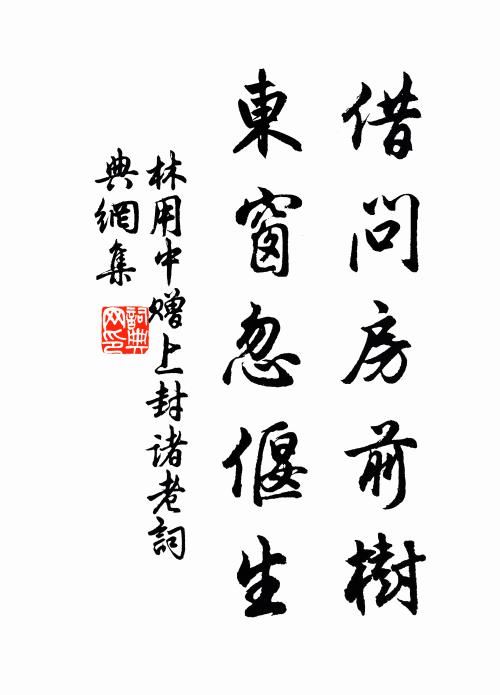 借问房前樹
東窗忽偃生
林用中赠上封诸老詞
典網集
詞典网印